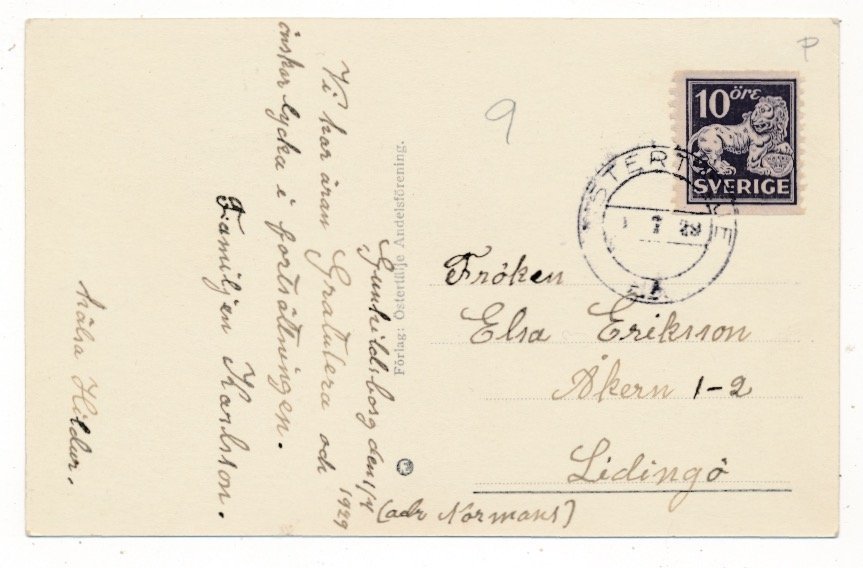 Gunhildsborg den 1/4 1929
Vi har äran Gratulera och
önskar lycka i fortsättningen.
Familjen Karlsson.
hälsa Hildur.
Förlag: Östertälje Andelsförening.
9
P
10 öre
SVERIGE
Fröken
Elsa Eriksson
Åkern 1-2
Lidingö
(adr Normans)